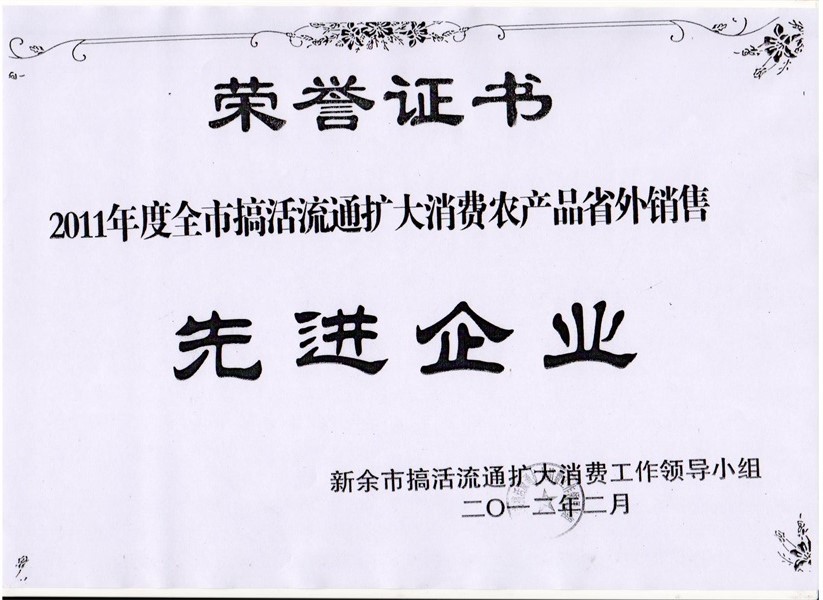 荣誉证书
2011年度全市搞活流通扩大消费农产品省外销售
先进企业
新余市搞活流通扩大消费工作领导小组
二〇一二年二月